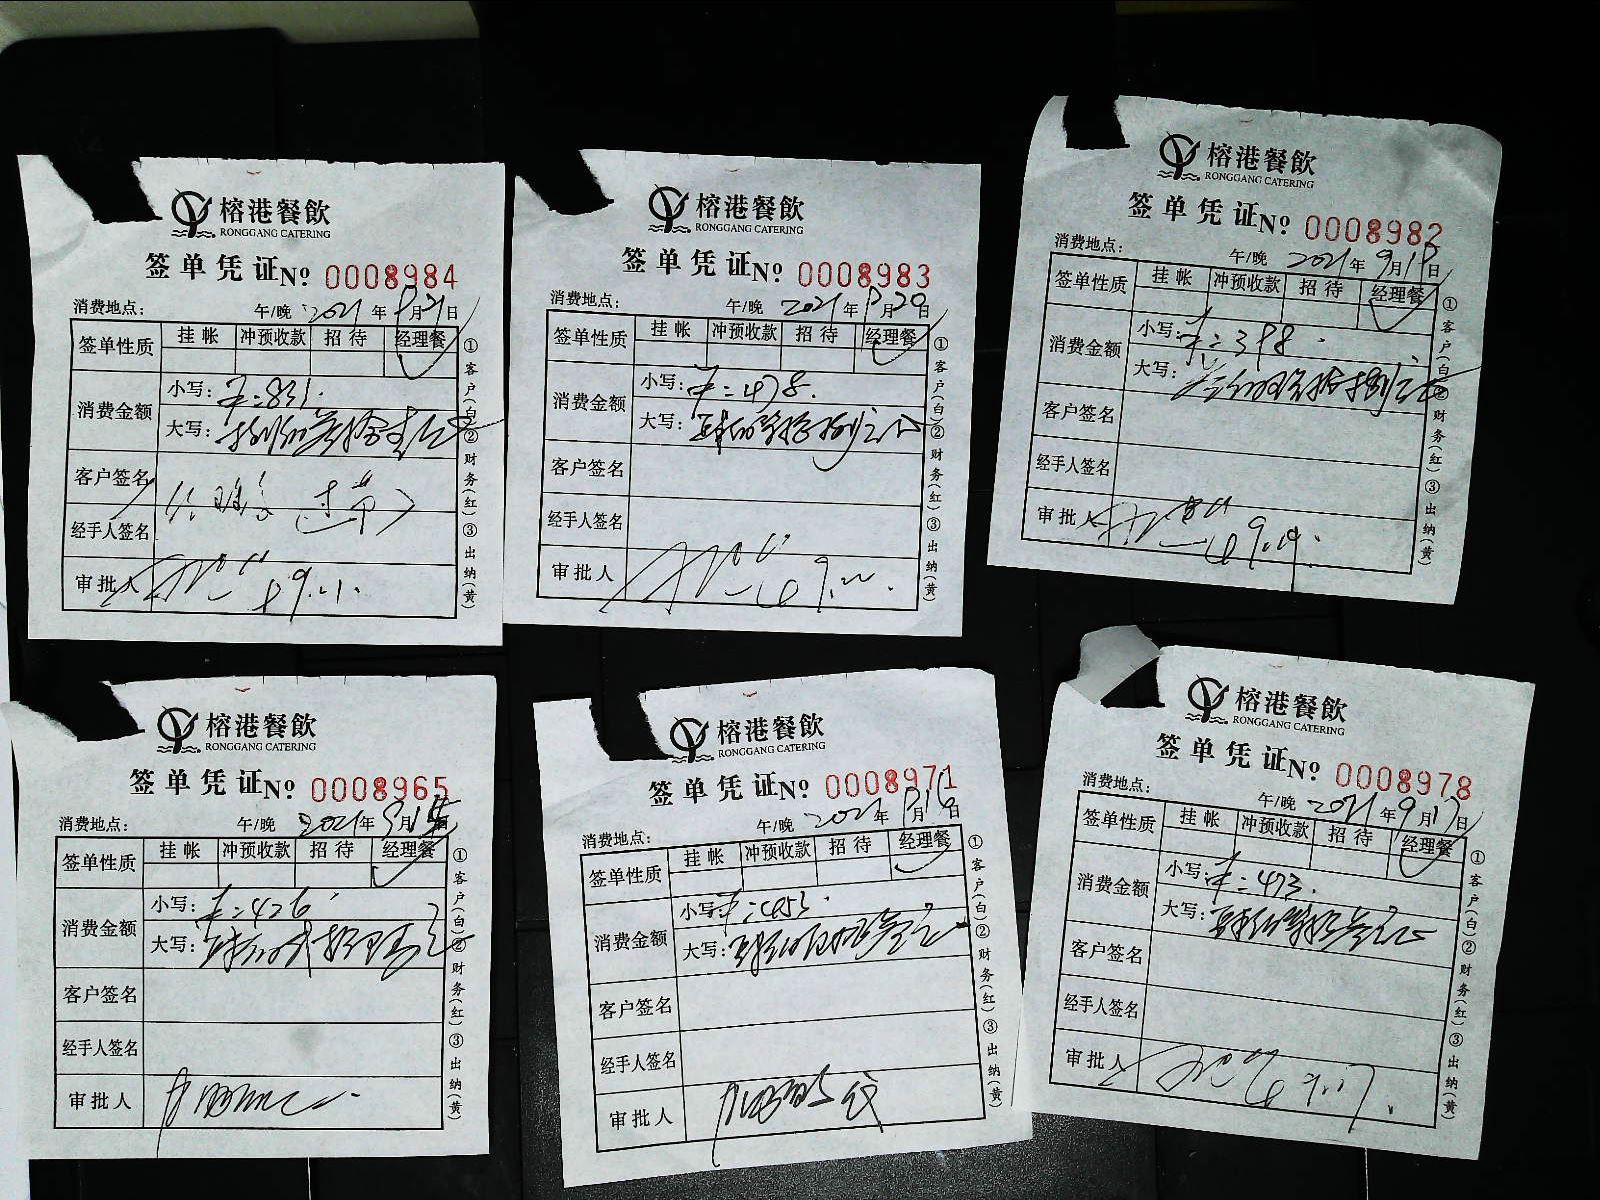 榕港餐飲
RONGGANG CATERING
签单凭证№ 0008984
消费地点: 午/晚 2021年9月21日
签单性质 挂帐 冲预收款 招待 经理餐
消费金额 小写: 831.
大写:
客户签名
经手人签名
审批人 9.21.
①客户(白)②财务(红)③出纳(黄)
榕港餐飲
RONGGANG CATERING
签单凭证№ 0008983
消费地点: 午/晚 2021年9月20日
签单性质 挂帐 冲预收款 招待 经理餐
消费金额 小写: 478.
大写:
客户签名
经手人签名
审批人
①客户(白)②财务(红)③出纳(黄)
榕港餐飲
RONGGANG CATERING
签单凭证№ 0008982
消费地点: 午/晚 2021年9月18日
签单性质 挂帐 冲预收款 招待 经理餐
消费金额 小写: 398.
大写:
客户签名
经手人签名
审批人 9.19.
①客户(白)②财务(红)③出纳(黄)
榕港餐飲
RONGGANG CATERING
签单凭证№ 0008965
消费地点: 午/晚 2021年9月15日
签单性质 挂帐 冲预收款 招待 经理餐
消费金额 小写: 426.
大写:
客户签名
经手人签名
审批人
①客户(白)②财务(红)③出纳(黄)
榕港餐飲
RONGGANG CATERING
签单凭证№ 0008971
消费地点: 午/晚 2021年9月16日
签单性质 挂帐 冲预收款 招待 经理餐
消费金额 小写: 453.
大写:
客户签名
经手人签名
审批人
①客户(白)②财务(红)③出纳(黄)
榕港餐飲
RONGGANG CATERING
签单凭证№ 0008978
消费地点: 午/晚 2021年9月17日
签单性质 挂帐 冲预收款 招待 经理餐
消费金额 小写: 473.
大写:
客户签名
经手人签名
审批人 9.17.
①客户(白)②财务(红)③出纳(黄)